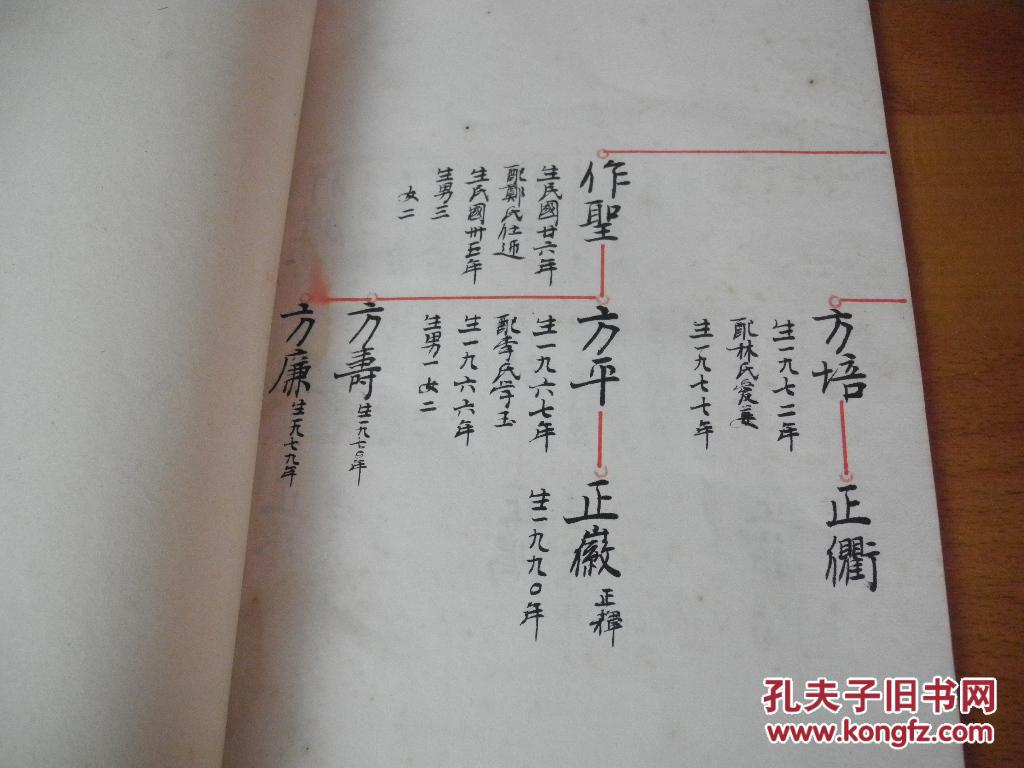 作聖
生民國廿六年
配鄭氏仕
生民國卅五年
生男三
女二
方培
生一九七二年
配林氏愛
生一九七七年
方平
生一九六七年
配李氏学玉
生一九六六年
生男一女二
方壽
生一九七〇年
方廉
生一九七九年
正衢
正徽
正輝
生一九九〇年
孔夫子旧书网
www.kongfz.com